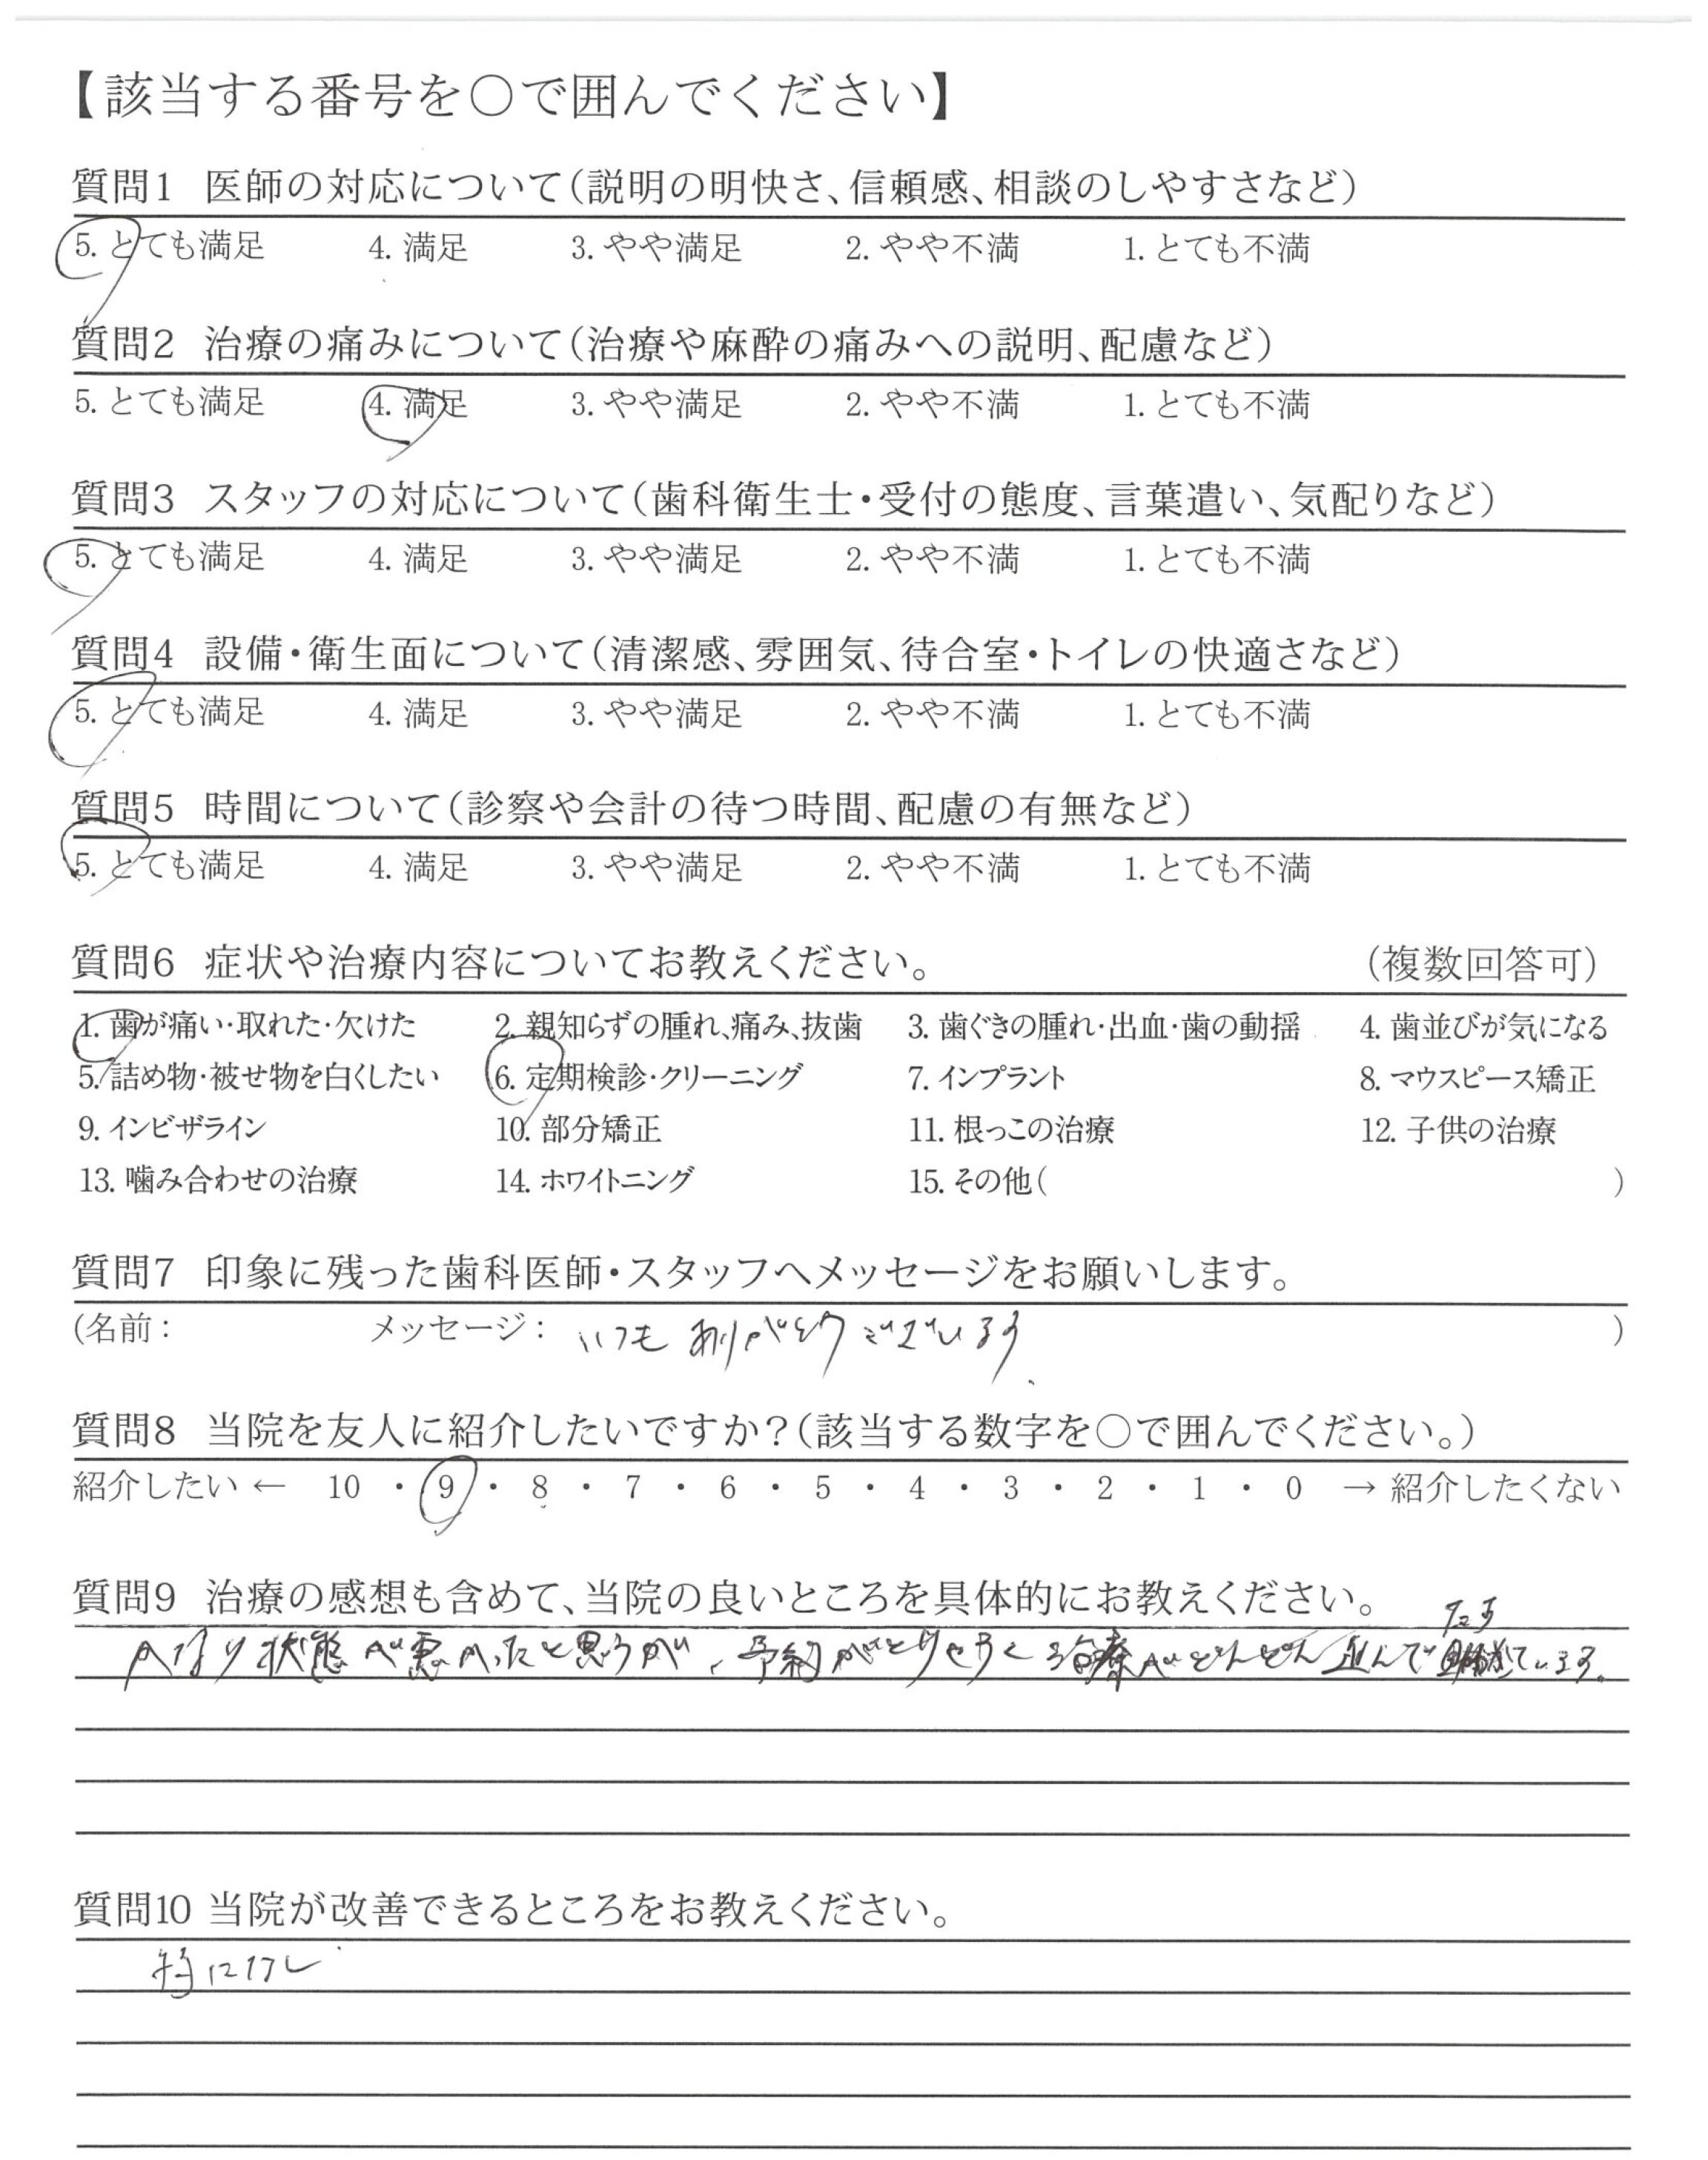 【該当する番号を○で囲んでください】
質問1 医師の対応について(説明の明快さ、信頼感、相談のしやすさなど)
5. とても満足 4. 満足 3. やや満足 2. やや不満 1. とても不満
質問2 治療の痛みについて(治療や麻酔の痛みへの説明、配慮など)
5. とても満足 4. 満足 3. やや満足 2. やや不満 1. とても不満
質問3 スタッフの対応について(歯科衛生士・受付の態度、言葉遣い、気配りなど)
5. とても満足 4. 満足 3. やや満足 2. やや不満 1. とても不満
質問4 設備・衛生面について(清潔感、雰囲気、待合室・トイレの快適さなど)
5. とても満足 4. 満足 3. やや満足 2. やや不満 1. とても不満
質問5 時間について(診察や会計の待つ時間、配慮の有無など)
5. とても満足 4. 満足 3. やや満足 2. やや不満 1. とても不満
質問6 症状や治療内容についてお教えください。 (複数回答可)
1. 歯が痛い・取れた・欠けた 2. 親知らずの腫れ、痛み、抜歯 3. 歯ぐきの腫れ・出血・歯の動揺 4. 歯並びが気になる
5. 詰め物・被せ物を白くしたい 6. 定期検診・クリーニング 7. インプラント 8. マウスピース矯正
9. インビザライン 10. 部分矯正 11. 根っこの治療 12. 子供の治療
13. 噛み合わせの治療 14. ホワイトニング 15. その他( )
質問7 印象に残った歯科医師・スタッフへメッセージをお願いします。
(名前: メッセージ: いつもありがとうございます )
質問8 当院を友人に紹介したいですか?(該当する数字を○で囲んでください。)
紹介したい ← 10 ・ 9 ・ 8 ・ 7 ・ 6 ・ 5 ・ 4 ・ 3 ・ 2 ・ 1 ・ 0 → 紹介したくない
質問9 治療の感想も含めて、当院の良いところを具体的にお教えください。
かなり状態が悪かったと思うが、予約がとりやすく治療がどんどん進んで助かっています。
質問10 当院が改善できるところをお教えください。
特になし